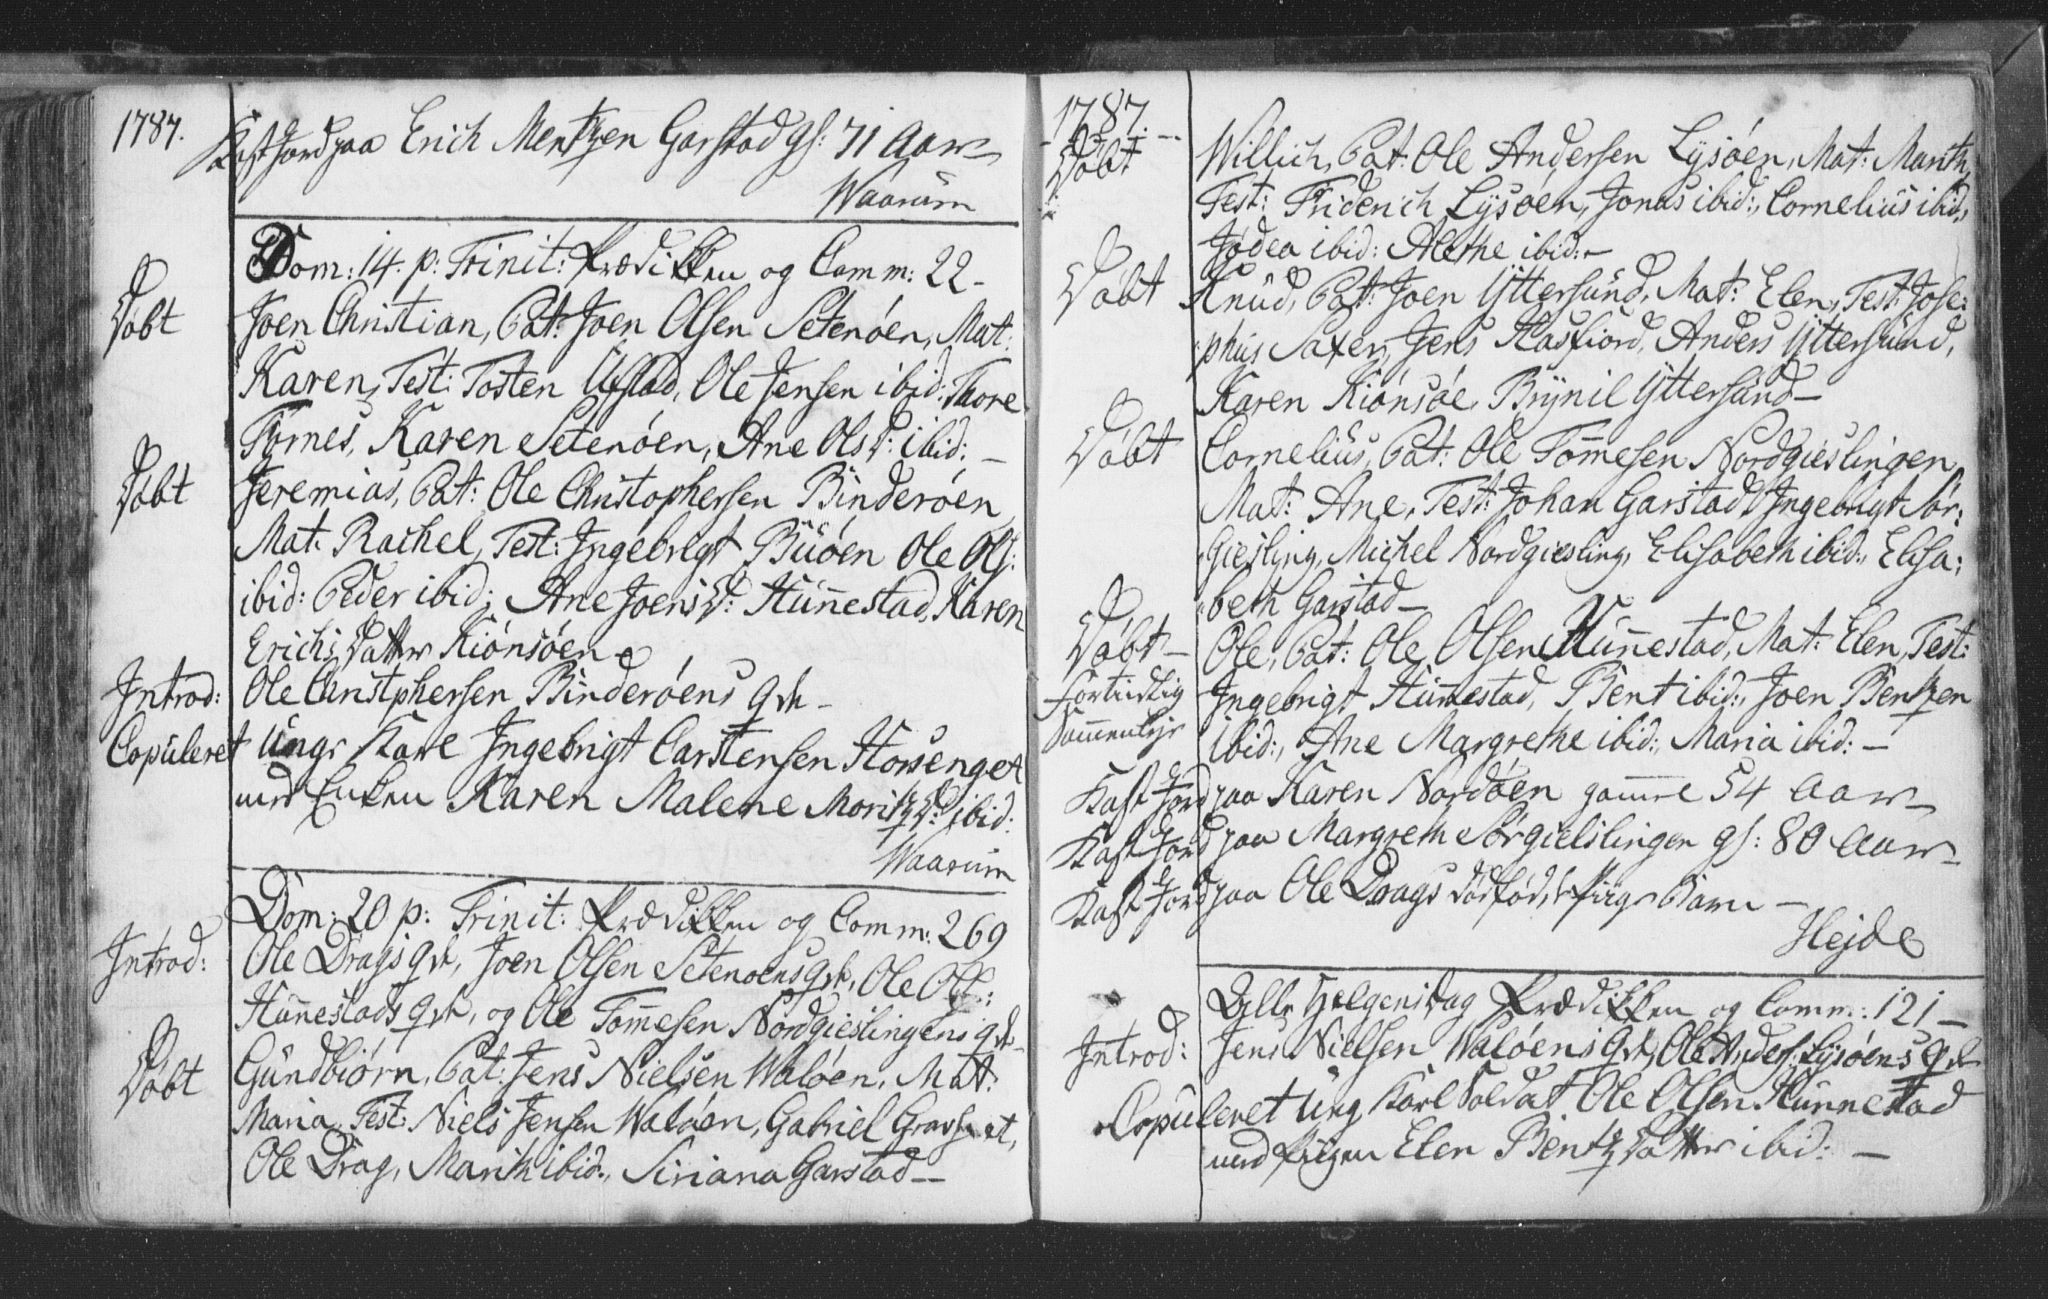 1787.
Kast Jord paa Erich Mentzen Garstad gl: 71 Aar
Waarum
Dom: 14. p: Trinit: Prædikken og Comm: 22-
Døbt Joen Christian, Pat: Joen Olsen Setenøen, Mat:
Karen, Test: Tosten Ufstad, Ole Jensen ibid: Thore
Fornes, Karen Setenøen, Ane Ols D: ibid: -
Døbt Jeremias, Pat: Ole Christophersen Binderøen
Mat: Rachel, Test: Ingebrigt Buøen Ole Ols:
ibid: Peder ibid: Ane Joens D: Hunnestad, Karen
Erichs Datter Kiønsøen -
Introd: Ole Christphersen Binderøens qde -
Copuleret Unge Karl Ingebrigt Carstensen Horsenget
med Enken Karen Malene Moritz D: ibid:
Waarum
Dom: 20 p: Trinit: Prædikken og Comm: 269
Introd: Ole Drags qde, Joen Olsen Setenoens qde, Ole Ols:
Hunnestads qde, og Ole Tommesen Nordgieslingens qde
Døbt Gundbiørn, Pat: Jens Nielsen Waløen, Mat:
Maria, Test: Niels Jensen Waløen, Gabriel
Ole Drag, Marith ibid:, Siriana Garstad -
1787.
Døbt Willich, Pat: Ole Andersen Lysøen, Mat: Marith,
Test: Friderich Lysøen, Jonas ibid:, Cornelius ibid:,
Jødea ibid: Alethe ibid: -
Døbt Knud, Pat: Joen Yttersund, Mat: Elen, Test: Jose:
phus Saxen, Jens Hasfiord, Anders Yttersund,
Karen Kiønsøe, Brynil Yttersund -
Døbt Cornelius, Pat: Ole Tommesen Nordgieslingen
Mat: Ane, Test: Johan Garstad, Ingebrigt Sør:
Giesling, Michel Nordgiesling, Elisabeth ibid:, Elisa:
beth Garstad -
Døbt - Ole, Pat: Ole Olsen Hunnestad, Mat: Elen, Test:
fortiidlig Ingebrigt Hunnestad, Bent ibid:, Joen Bentzen
Sammenleje ibid:, Ane Margrethe ibid:, Maria ibid: -
Kast Jord paa Karen Nordøen gammel 54 Aar
Kast Jord paa Margreth Sørgieslingen gl: 80 Aar
Kast Jord paa Ole Drags dødfødde Pige Barn -
Hejde
Alle Helgens Dag Prædikken og Comm: 121 -
Introd: Jens Nielsen Waløens qde, Ole Anders: Lysøens qde
Copuleret Ung Karl Soldat Ole Olsen Hunnestad
med Pigen Elen Bentz Datter ibid: -